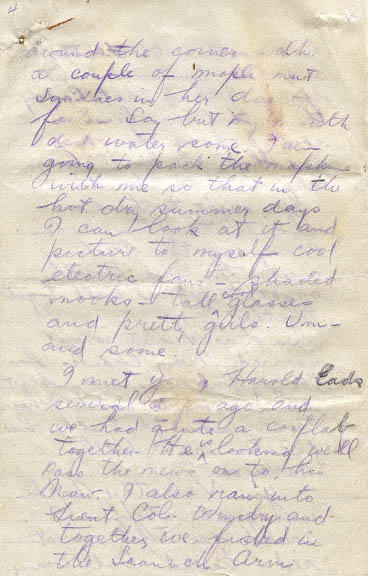 4
around the corner
a couple of maple nut
Sundaes in her
Say but my mouth
did water some. I am
going to pack the
with me so that in the
hot dry summer days
I can look at it and
picture to myself cool
electric fans - shaded
nooks - tall glasses
and pretty girls. Um-
and some.
I met Harold Eads
several ago and
we had quite a confab
together He is looking well
Pass the news on to his
Maw. I also ran into
Lieut. Cole and
together we in
the Arm